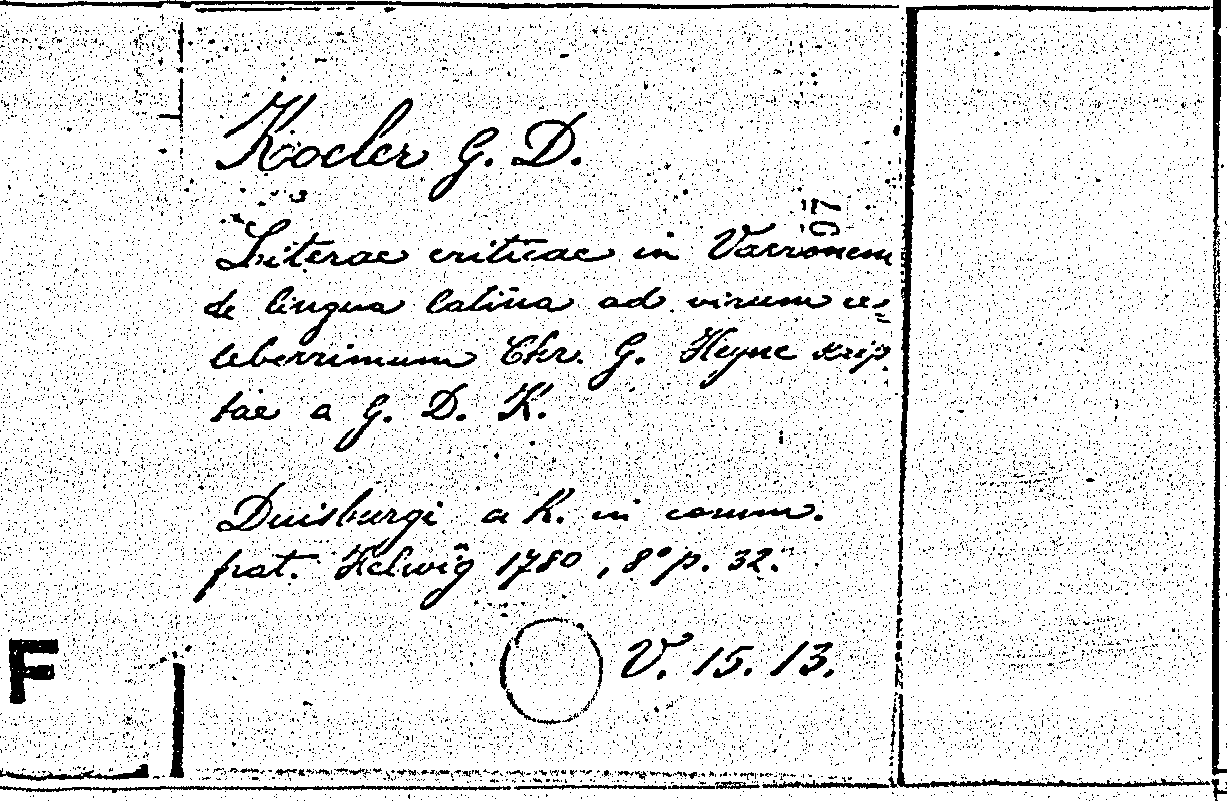 Koeler G. D.
97
Literae criticae in Varronem
de lingua latina ad virum ce=
leberrimum Chr. G. Heyne scrip
tae a G. D. K.
Duisburgi a R. in comm.
frat. Helwig 1780, 8° p. 32.
V. 15. 13.
F